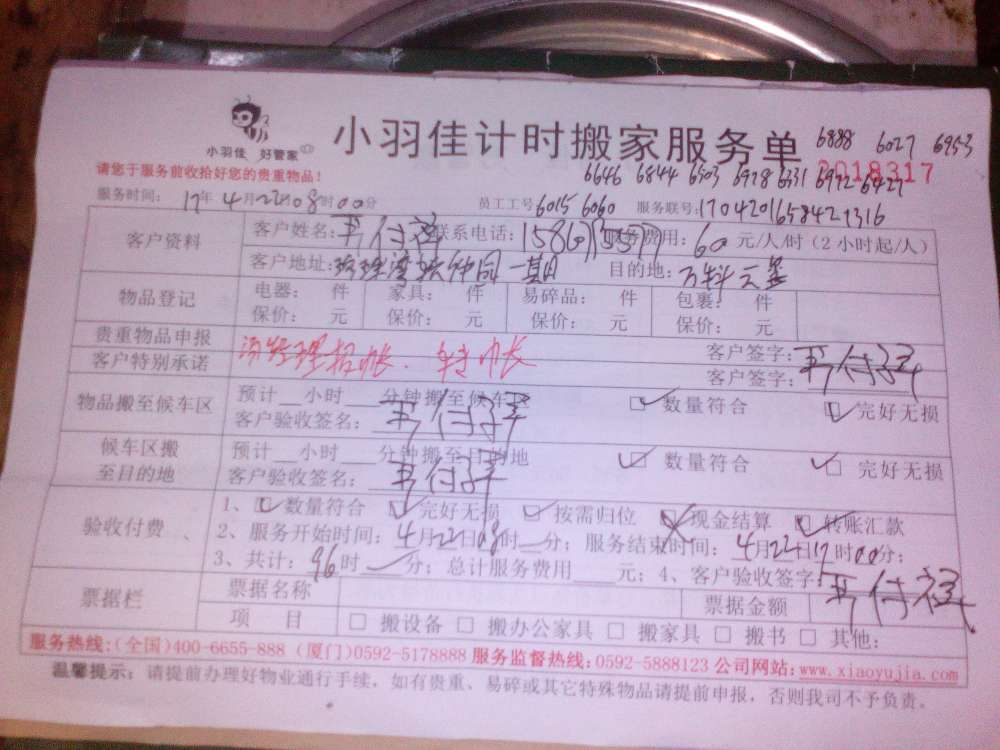 小羽佳 好管家
小羽佳计时搬家服务单
6888 6027 6953
请您于服务前收拾好您的贵重物品！
6646 6844 6503 6928 6331 6922 6427
2018317
服务时间： 17年 4月 22日 08时 00分 员工工号 6015 6060 服务联号：
客户资料
客户姓名： 联系电话： 服务费用： 60 元/人/时（2小时起/人）
客户地址： 一期 目的地： 万科云玺
物品登记
电器： 件 家具： 件 易碎品： 件 包裹： 件
保价： 元 保价： 元 保价： 元 保价： 元
贵重物品申报
客户签字：
客户特别承诺
客户签字：
物品搬至候车区
预计__小时__分钟搬至候车区 □ 数量符合 □ 完好无损
客户验收签名：
候车区搬至目的地
预计__小时__分钟搬至目的地 □ 数量符合 □ 完好无损
客户验收签名：
验收付费
1、□ 数量符合 □ 完好无损 □ 按需归位 □ 现金结算 □ 转账汇款
2、服务开始时间： 4月22日08时__分；服务结束时间： 4月22日17时00分；
3、共计： 96时__分；总计服务费用____元；4、客户验收签字：
票据栏
票据名称 票据金额
项 目 □ 搬设备 □ 搬办公家具 □ 搬家具 □ 搬书 □ 其他：
服务热线：（全国）400-6655-888（厦门）0592-5178888 服务监督热线：0592-5888123 公司网站：www.xiaoyujia.com
温馨提示：请提前办理好物业通行手续，如有贵重、易碎或其它特殊物品请提前申报，否则我司不予负责。